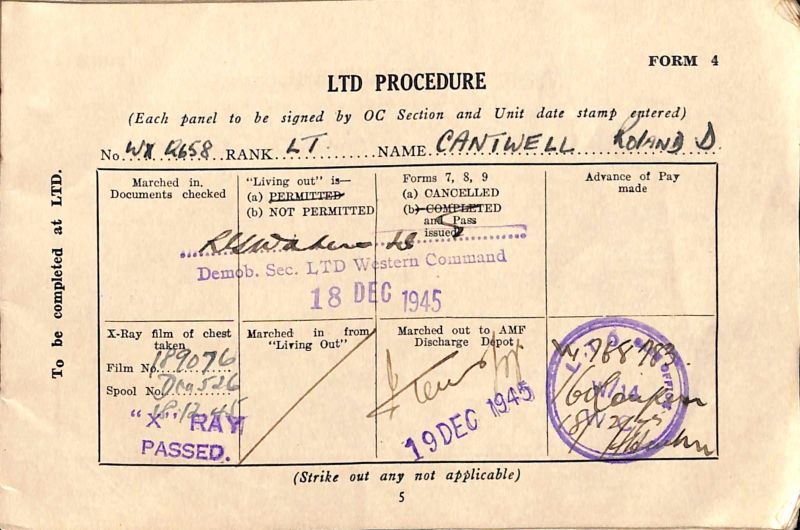 FORM 4
LTD PROCEDURE
(Each panel to be signed by OC Section and Unit date stamp entered)
No. WX RANK LT. NAME. CANTWELL ROLAND D.
To be completed at LTD.
Marched in.
Documents checked
"Living out" is—
(a) PERMITTED
(b) NOT PERMITTED
Forms 7, 8, 9
(a) CANCELLED
(b) COMPLETED
and Pass
issued
Advance of Pay
made
Demob. Sec. LTD Western Command
18 DEC 1945
X-Ray film of chest
taken
Film No. 189076
Spool No. 526
18.12.45
"X" RAY
PASSED.
Marched in from
"Living Out"
Marched out to AMF
Discharge Depot
19 DEC 1945
(Strike out any not applicable)
5